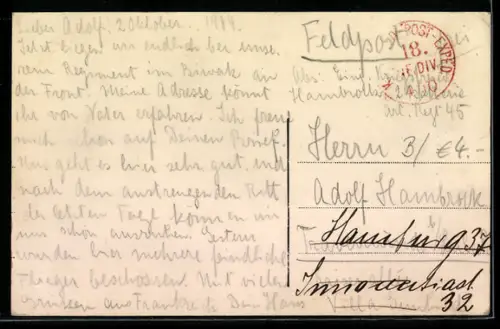 Lieber Adolf, 2 Oktober. 1914.
Jetzt liegen wir endlich bei unse-
rem Regiment im Biwak an
der Front. Meine Adresse könnt
ihr von Vater erfahren. Ich freue
mich schon auf Deinen Brief.
Uns geht es hier sehr gut, und
nach dem anstrengenden Ritt
der letzten Tage können wir
uns schön ausruhen. Gestern
wurden hier mehrere feindliche
Flieger beschossen. Mit vielen
Grüssen aus Frankreich Dein Hans
Feldpost
POST-EXPED
18.
DIV
Abs: Einj.
Hambrock
Art. Regt 45
Herrn B/ €4.-
Adolf Hambrock
Hamburg 37
Innocentiast
32
Villa